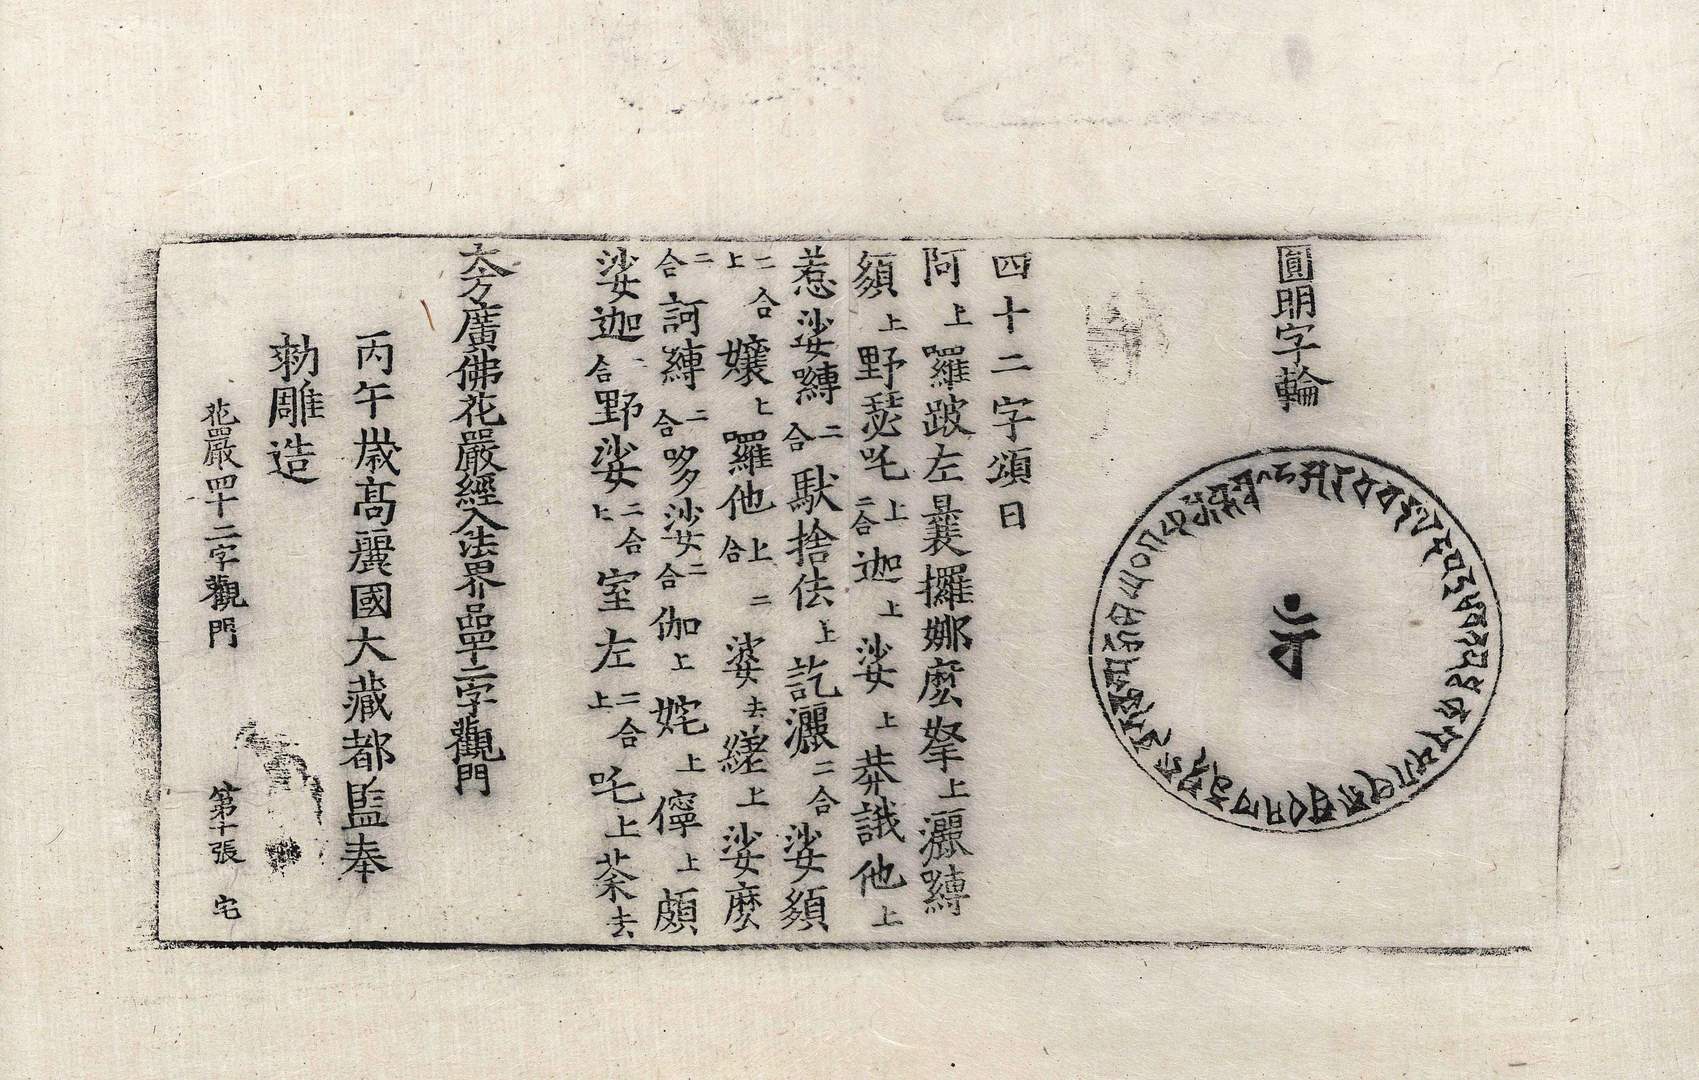 圓明字輪
四十二字頌曰
阿上羅跛左曩攞娜麼拏上灑嚩
頦上野瑟吒上二合迦上娑上莽誐他上
惹娑嚩二合馱捨佉上訖灑二合娑頦
二合上孃上囉他上二合婆去縒上娑麼
二合訶嚩二合哆娑二合伽上姹上儜上頗
娑迦合野娑二合上室左二合上吒上荼去
大方廣佛花嚴經入法界品四十二字觀門
丙午歲高麗國大藏都監奉
勅雕造
花嚴四十二字觀門 第十張 宅